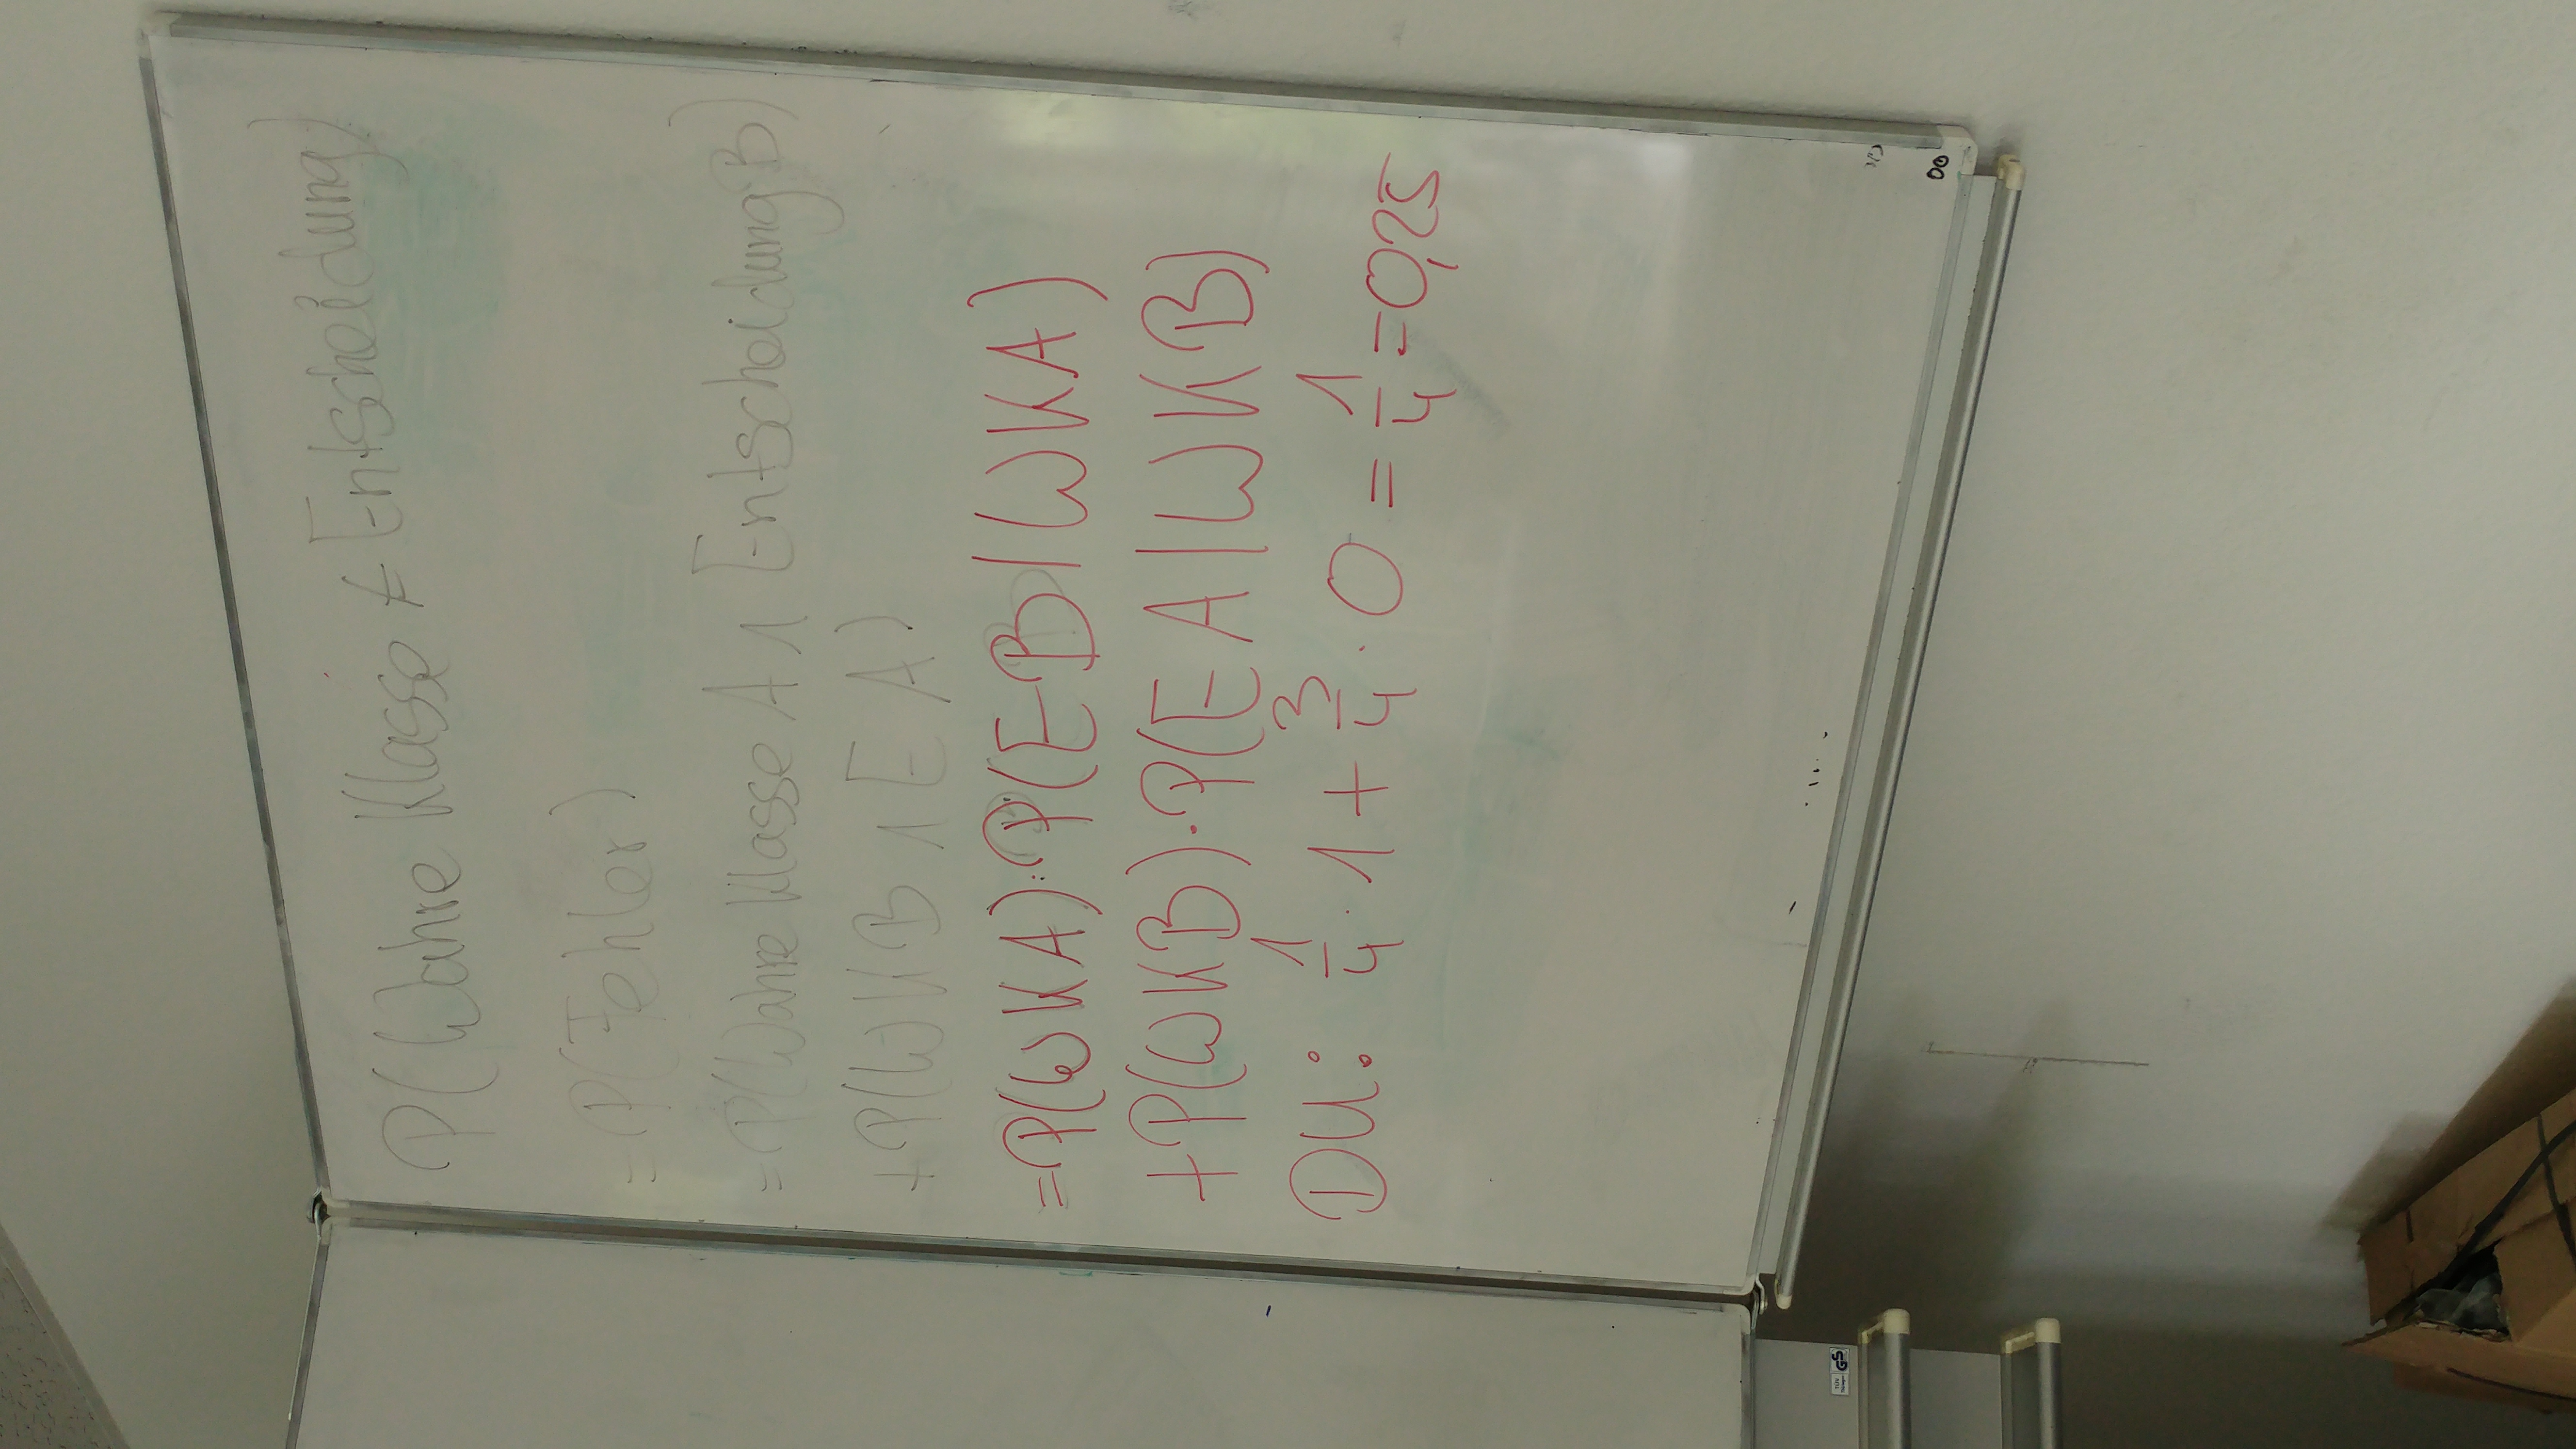 P(Wahre Klasse ≠ Entscheidung)
= P(Fehler)
= P(Wahre Klasse A ∧ Entscheidung B)
+ P(WKB ∧ E A)
= P(WKA) · P(EB | WKA)
+ P(WKB) · P(EA | WKB)
DU: 1/4 · 1 + 3/4 · 0 = 1/4 = 0,25
TÜV
GS